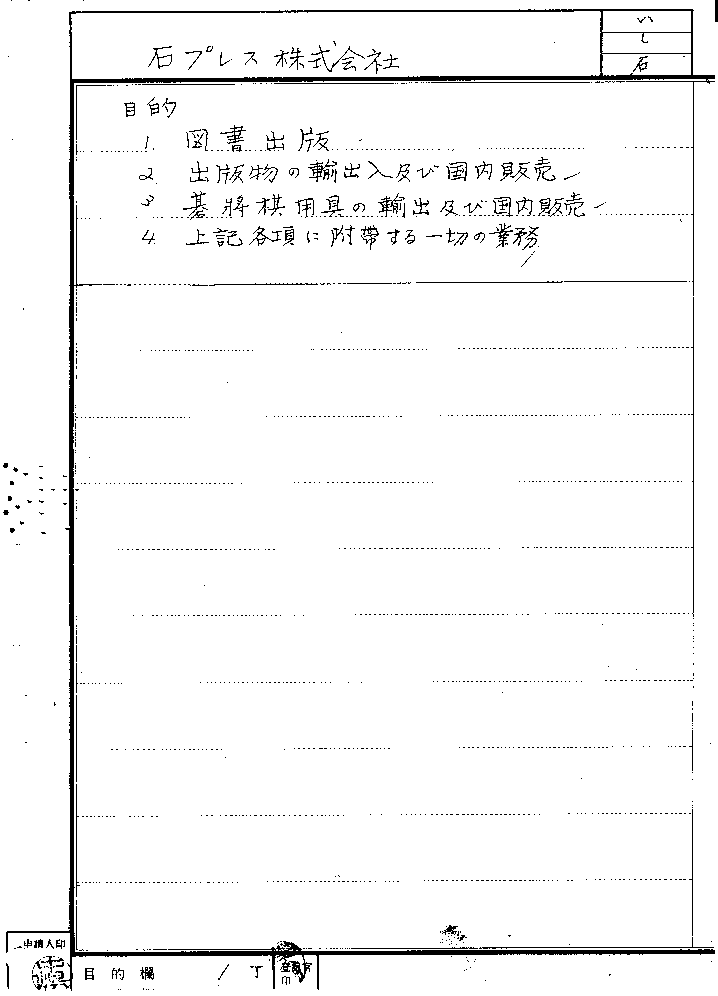 い
し
石
石プレス株式会社
目的
1 図書出版
2 出版物の輸出入及び国内販売
3 碁將棋用具の輸出及び国内販売
4 上記各項に附帶する一切の業務
申請人印
目的欄 / 丁
印